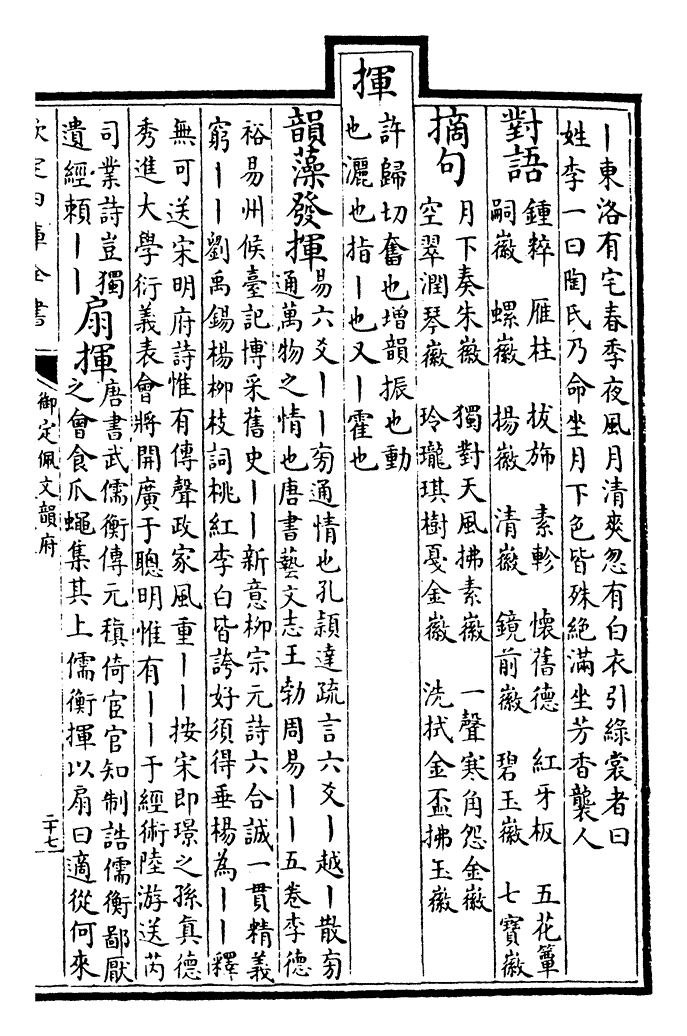 丨東洛有宅春季夜風月清爽忽有白衣引綠裳者曰
姓李一曰陶氏乃命坐月下色皆殊絶滿坐芳香襲人
對語
鍾粹　雁柱　拔斾　素軫　懷舊德　紅牙板　五花簟
嗣徽　螺徽　揚徽　清徽　鏡前徽　碧玉徽　七寶徽
摘句
月下奏朱徽　獨對天風拂素徽　一聲寒角怨金徽
空翠潤琴徽　玲瓏琪樹戞金徽　洗拭金盃拂玉徽
揮
許歸切奮也增韻振也動
也灑也指丨也又丨霍也
韻藻發揮
易六爻丨丨旁通情也孔頴達疏言六爻丨越丨散旁
通萬物之情也唐書藝文志王勃周易丨丨五卷李德
裕易州候臺記博采舊史丨丨新意柳宗元詩六合誠一貫精義
窮丨丨劉禹錫楊柳枝詞桃紅李白皆誇好須得垂楊為丨丨釋
無可送宋明府詩惟有傳聲政家風重丨丨按宋即璟之孫真德
秀進大學衍義表會將開廣于聰明惟有丨丨于經術陸游送芮
司業詩豈獨
遺經頼丨丨
扇揮
唐書武儒衡傳元稹倚宦官知制誥儒衡鄙厭
之會食瓜蠅集其上儒衡揮以扇曰適從何來
欽定四庫全書
御定佩文韻府
二十七